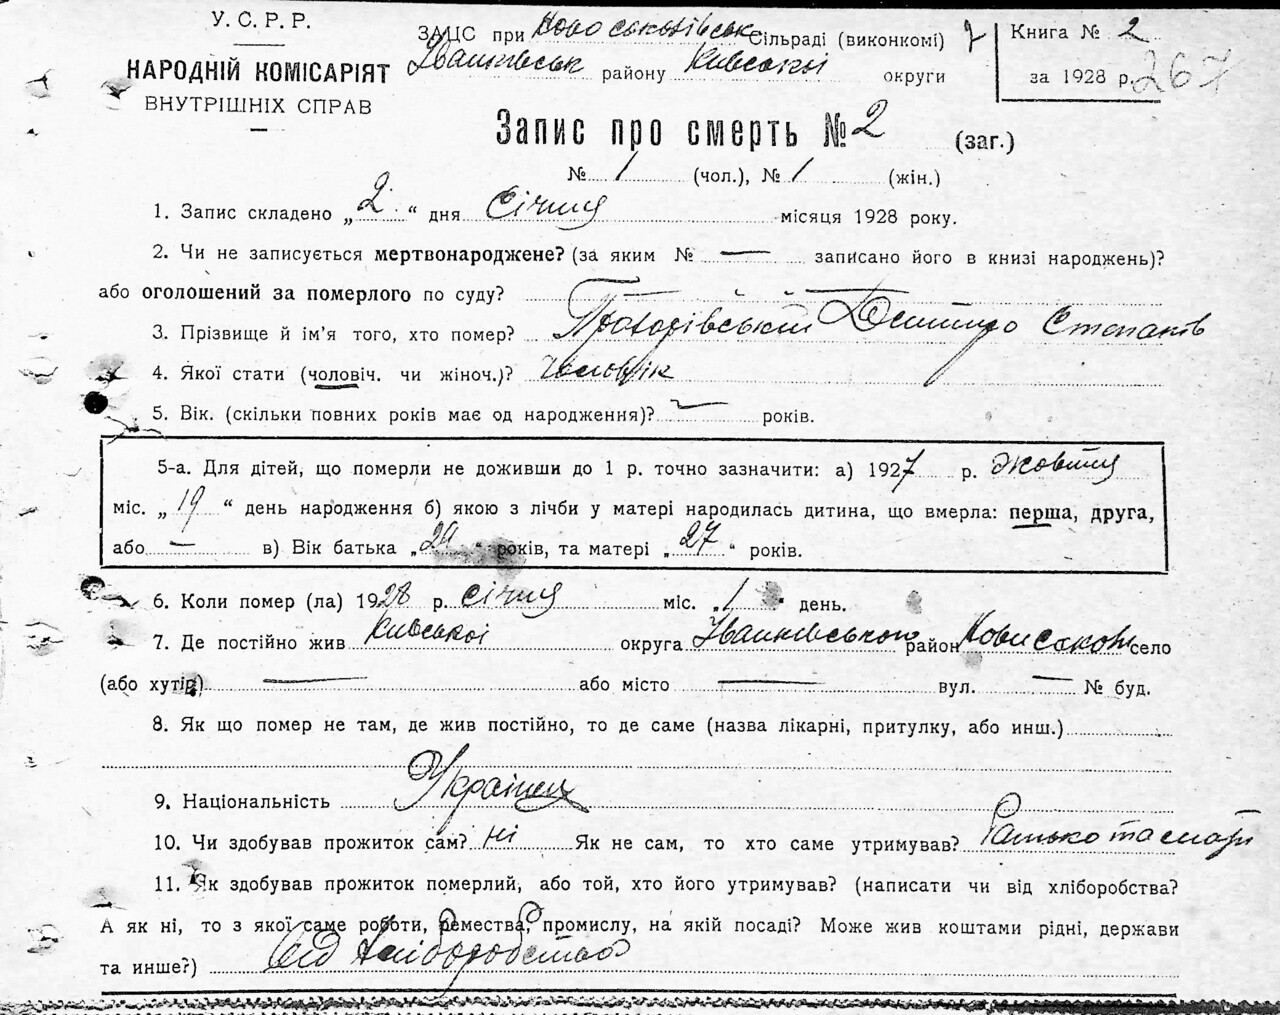 У. С. Р. Р.
НАРОДНІЙ КОМІСАРІЯТ
ВНУТРІШНІХ СПРАВ
ЗАЦС при Новосоколівськ Сільраді (виконкомі)
Іванківськ району Київської округи
Книга № 2
за 1928 р. 267
Запис про смерть № 2 (заг.)
№ 1 (чол.), № 1 (жін.)
1. Запис складено „ 2 “ дня Січня місяця 1928 року.
2. Чи не записується мертвонароджене? (за яким № — записано його в книзі народжень)?
або оголошений за померлого по суду?
3. Прізвище й ім'я того, хто помер? Дмитро Степанів
4. Якої стати (чоловіч. чи жіноч.)? Чоловік
5. Вік. (скільки повних років має од народження)? — років.
5-а. Для дітей, що померли не доживши до 1 р. точно зазначити: а) 1927 р. Жовтня
міс. „ 19 “ день народження б) якою з лічби у матері народилась дитина, що вмерла: перша, друга,
або — в) Вік батька „ 29 “ років, та матері „ 27 “ років.
6. Коли помер (ла) 1928 р. січня міс. „ 1 “ день.
7. Де постійно жив Київської округа Іванківського район село
(або хутір) — або місто — вул. — № буд.
8. Як що помер не там, де жив постійно, то де саме (назва лікарні, притулку, або инш.)
9. Національність Українец
10. Чи здобував прожиток сам? ні Як не сам, то хто саме утримував? Батько та мати
11. Як здобував прожиток померлий, або той, хто його утримував? (написати чи від хліборобства?
А як ні, то з якої саме роботи, ремества, промислу, на якій посаді? Може жив коштами рідні, держави
та инше?) Від Хліборобства